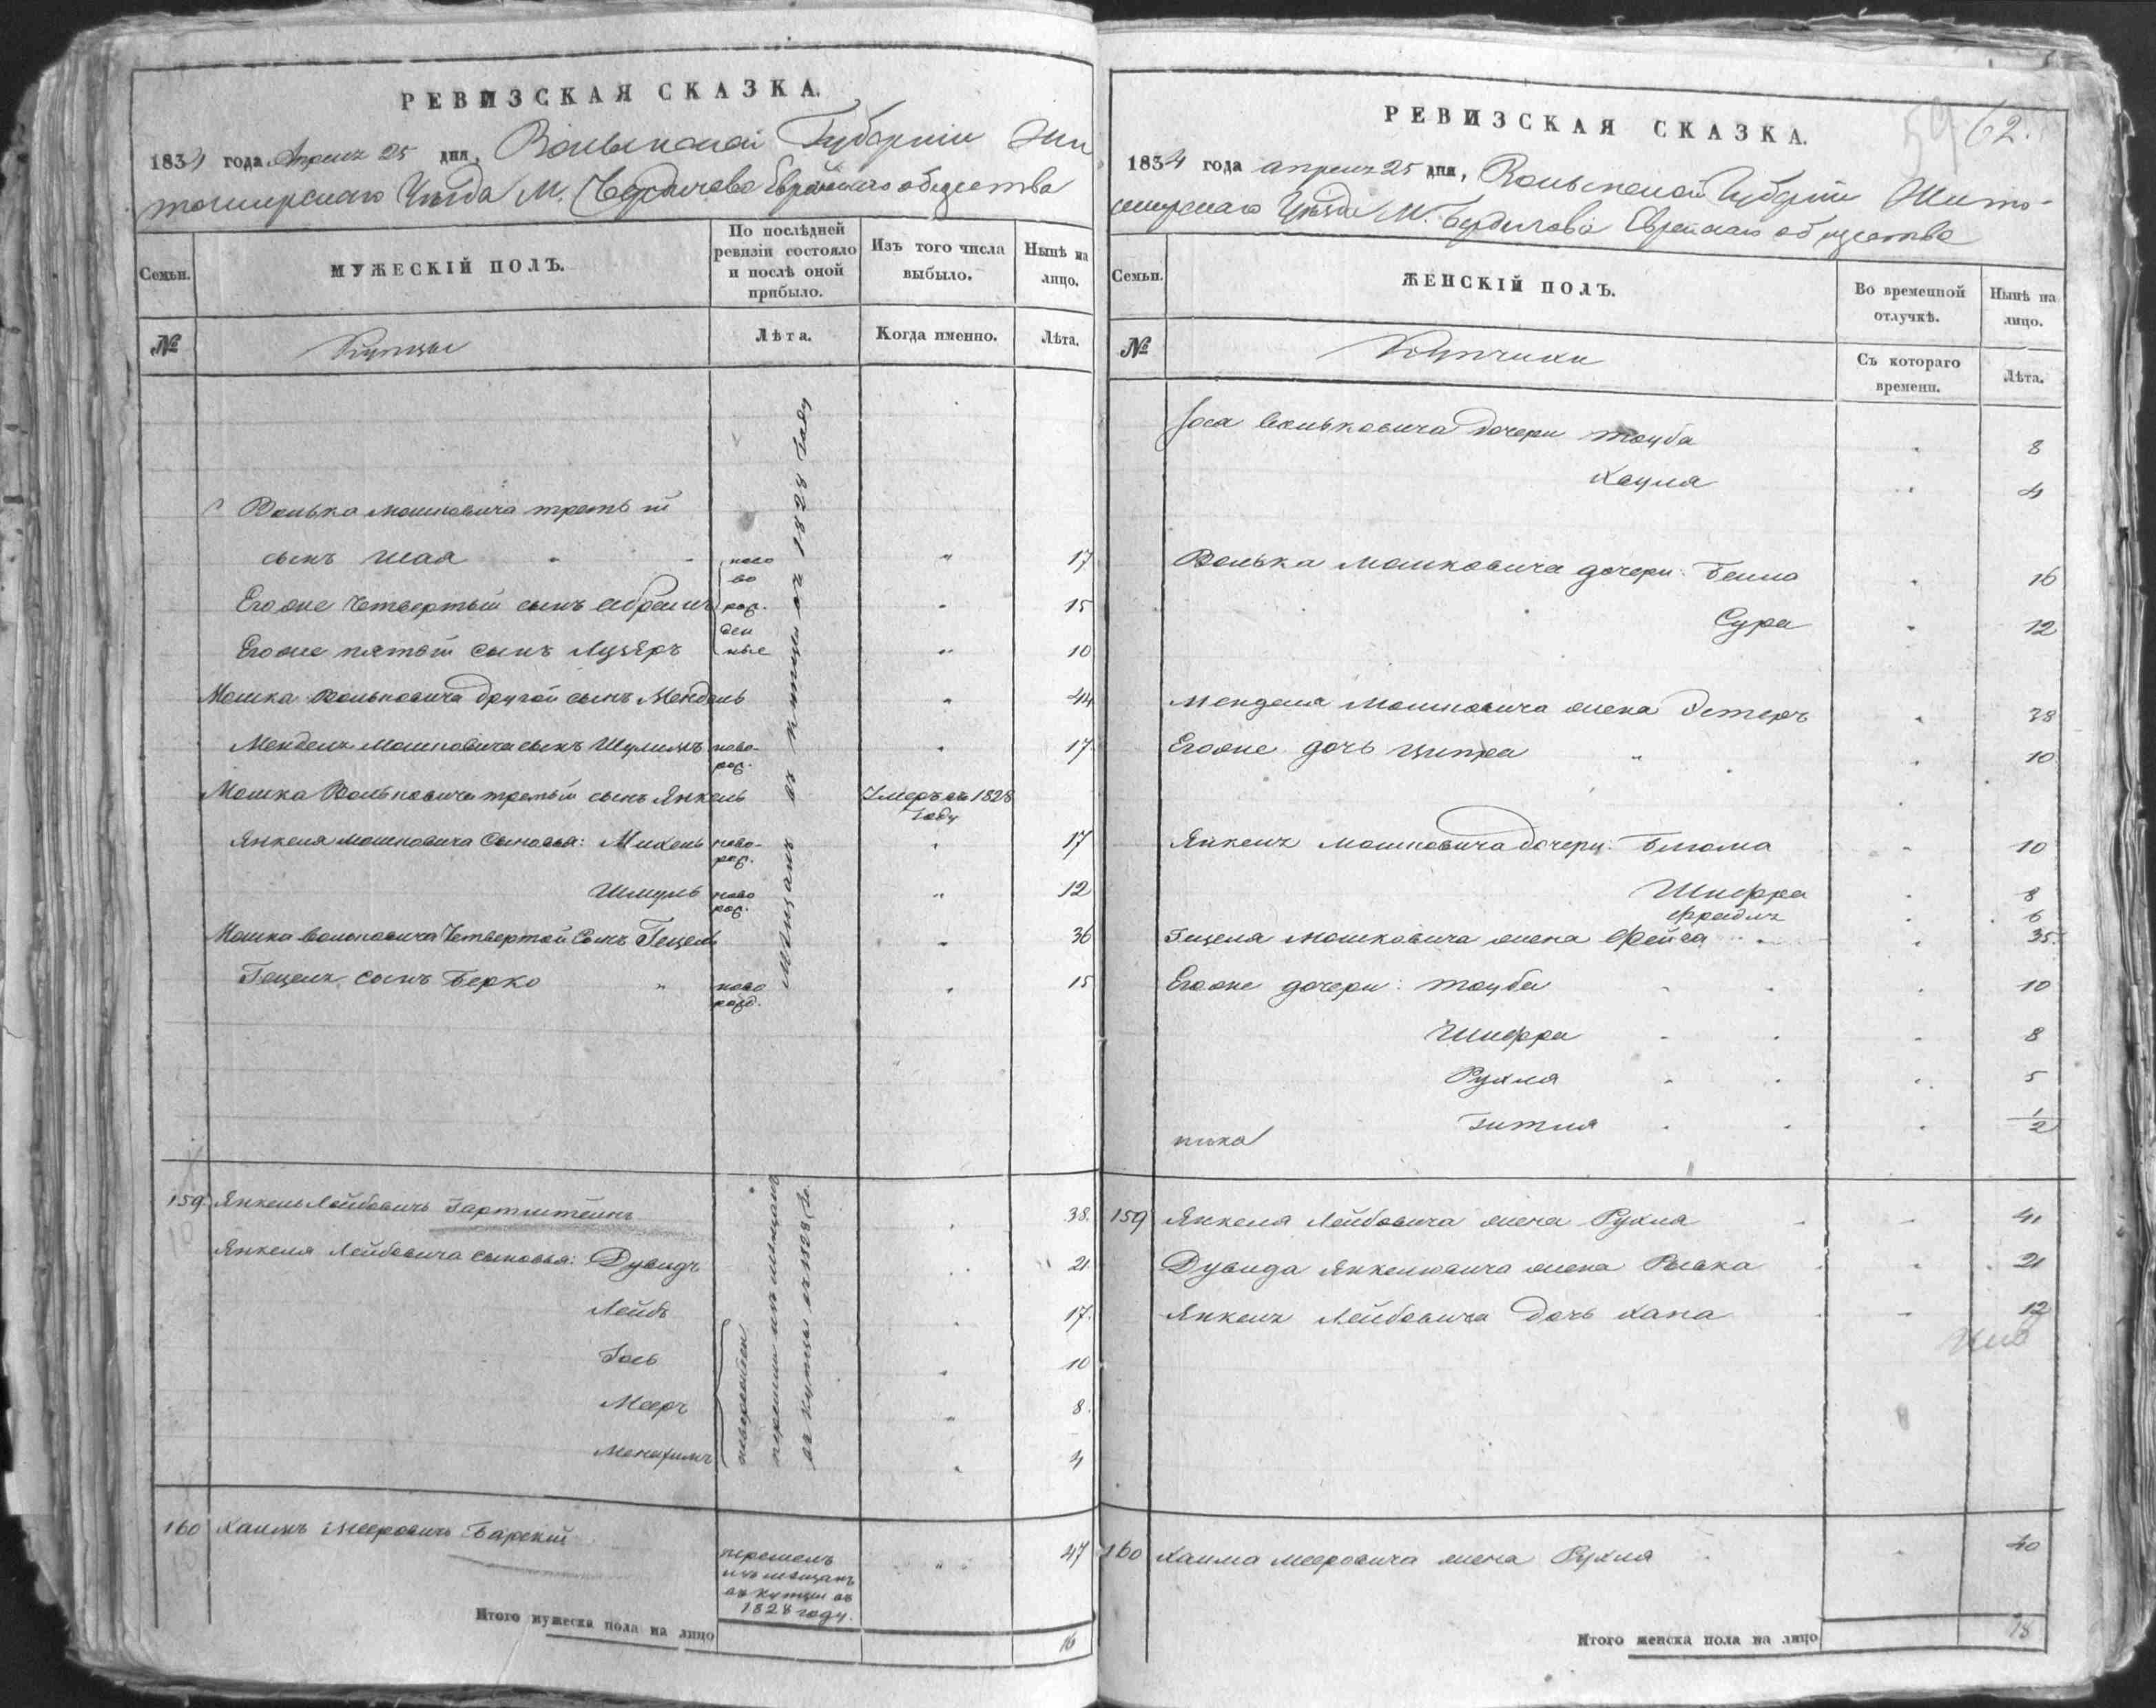 РЕВИЗСКАЯ СКАЗКА.
1834 года Апреля 25 дня, Волынской Губернии Жи
томирскаго Уѣзда М. Бердичева Еврейскаго общества
Семьи.
МУЖЕСКІЙ ПОЛЪ.
По послѣдней ревизіи состояло и послѣ оной прибыло.
Изъ того числа выбыло.
Нынѣ на лицо.
№
Купцы
Лѣта.
Когда именно.
Лѣта.
Волька Мошковича третій
сынъ Шая 17
Его же четвертый сынъ Абрамъ 15
Его же пятый сынъ Лузеръ 10
ново
во
рож.
ден
ные
Мошка Вольковича другой сынъ Мендель 44
Менделя Мошковича сынъ Шулимъ новорож. 17
Мошка Вольковича третьий сынъ Янкель Умеръ въ 1828 году
Янкеля Мошковича Сыновья: Михель новорож. 17
Шмуль новорож. 12
Мошка Вольковича Четвертой Сынъ Гецель 36
Гецеля сынъ Берко новорожд. 15
мещанъ въ купцы въ 1828 году
159 Янкель Лейбовичъ Гартштейнъ 38.
Янкеля Лейбовича сыновья: Дувидъ 21.
Лейбъ 17.
Іось 10
Мееръ 8.
Менахимъ 4
новорожден
перешли изъ мещанъ
въ купцы въ 1828 го.
160 Хаимъ Мееровичъ Барскій 47
перешелъ
изъ мещанъ
въ купцы въ
1828 году.
Итого мужеска пола на лицо 16
62.
59
РЕВИЗСКАЯ СКАЗКА.
1834 года апреля 25 дня, Волынской Губерніи Жито-
мирскаго Уѣзда М. Бердичева Еврейскаго общества
Семьи.
ЖЕНСКІЙ ПОЛЪ.
Во временной отлучкѣ.
Нынѣ на лицо.
№
Купчихи
Съ котораго времени.
Лѣта.
Іоса Вольковича дочери Тауба 8
Хация 4
Волька Мошковича дочери: Бейла 16
Сура 12
Менделя Мошковича жена Эстеръ 38
Его же дочь Ципра 10
Янкеля Мошковича дочери: Блюма 10
Шифра 8
Фрадля 6
Гецеля Мошковича жена Фейга 35.
Его же дочери: Тауба 10
Шифра 8
Рухля 5
Гитля 1/2
159 Янкеля Лейбовича жена Рухля 41
Дувида Янкелювича жена Рывка 21
Янкеля Лейбовича Дочь Хана 12
160 Хаима Мееровича жена Рухля 40
Итого женска пола на лицо 18